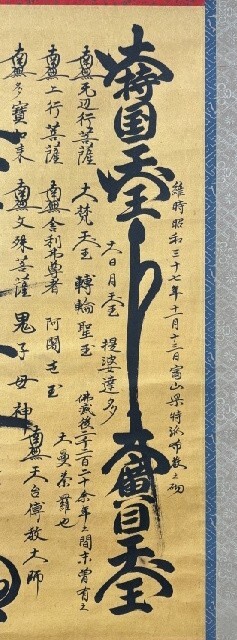 維時昭和三十七年十一月十三日富山県特派布教之砌
大持国天王
大廣目天王
大日月天王
提婆達多
南無无辺行菩薩
大梵天王
轉輪聖王
佛滅後二千二百二十余年之間未曾有之
大曼荼羅也
南無上行菩薩
南無舎利弗尊者
阿闍世王
南無多寶如来
南無文殊菩薩
鬼子母神
南無天台傳教大師